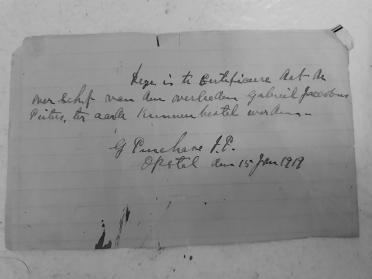 Deze is te Certificeere dat de
over Schot van den overleden Gabriel Jacobus
Pieters, ter aarde kunnen bestel worden.-
G J.P.
Opstel den 15 Jan 1919